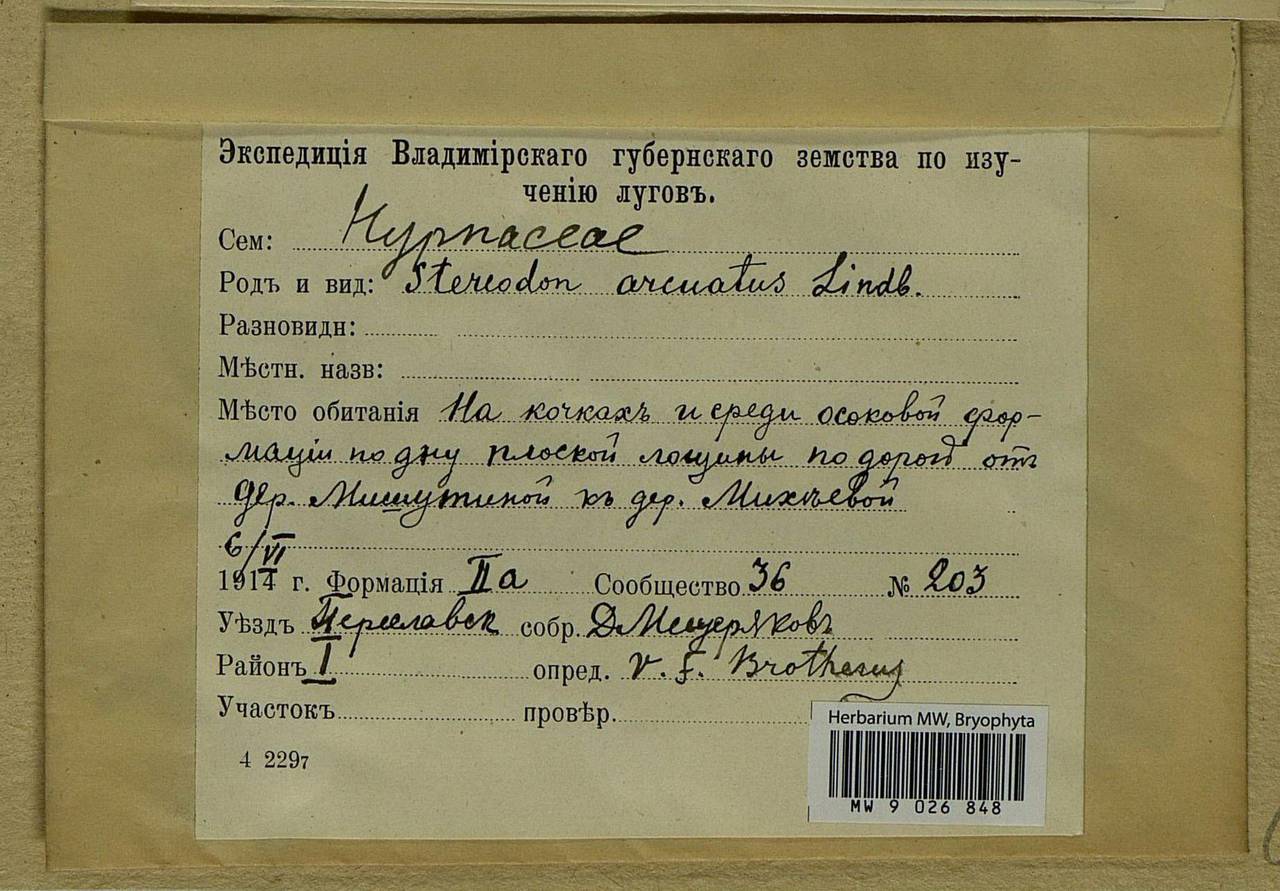 Экспедиція Владимірскаго губернскаго земства по изу-
ченію луговъ.
Сем: Hypnaceae
Родъ и вид: Stereodon arcuatus Lindb.
Разновидн:
Мѣстн. назв:
Мѣсто обитанія На кочкахъ и среди осоковой фор-
маціи по дну плоской лощины по дорогѣ отъ
дер. Мишутиной къ дер. Михѣевой
6/VI
1914 г. Формація IIa Сообщество 36 № 203
Уѣздъ Переславск собр. Д. Мещеряковъ
Районъ I опред. V. F. Brotherus
Участокъ провѣр.
4 2297
Herbarium MW, Bryophyta
MW 9 026 848